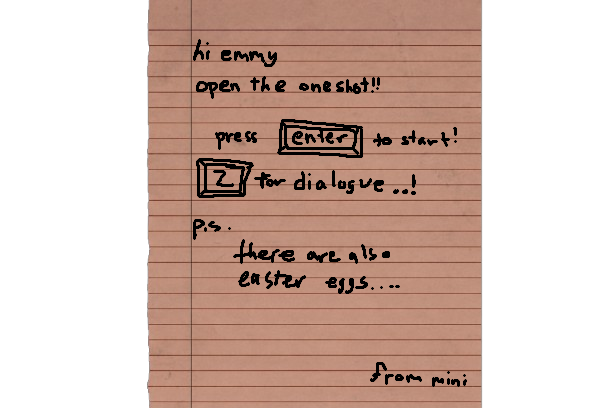 hi emmy
open the oneshot!!
press enter to start!
Z for dialogue ..!
p.s.
there are also
easter eggs....
from mini